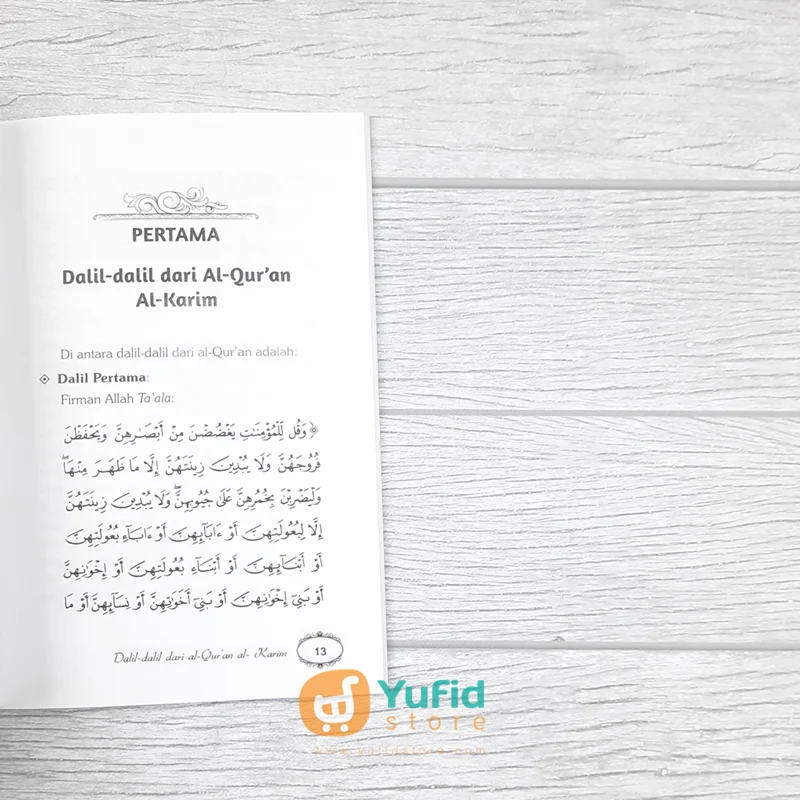 PERTAMA
Dalil-dalil dari Al-Qur'an
Al-Karim
Di antara dalil-dalil dari al-Qur'an adalah:
Dalil Pertama:
Firman Allah Ta'ala:
﴿ وَقُل لِّلْمُؤْمِنَٰتِ يَغْضُضْنَ مِنْ أَبْصَٰرِهِنَّ وَيَحْفَظْنَ
فُرُوجَهُنَّ وَلَا يُبْدِينَ زِينَتَهُنَّ إِلَّا مَا ظَهَرَ مِنْهَاۖ
وَلْيَضْرِبْنَ بِخُمُرِهِنَّ عَلَىٰ جُيُوبِهِنَّۖ وَلَا يُبْدِينَ زِينَتَهُنَّ
إِلَّا لِبُعُولَتِهِنَّ أَوْ ءَابَآئِهِنَّ أَوْ ءَابَآءِ بُعُولَتِهِنَّ
أَوْ أَبْنَآئِهِنَّ أَوْ أَبْنَآءِ بُعُولَتِهِنَّ أَوْ إِخْوَٰنِهِنَّ
أَوْ بَنِىٓ إِخْوَٰنِهِنَّ أَوْ بَنِىٓ أَخَوَٰتِهِنَّ أَوْ نِسَآئِهِنَّ أَوْ مَا
Dalil-dalil dari al-Qur'an al- Karim 13
Yufid
store
www.yufidstore.com